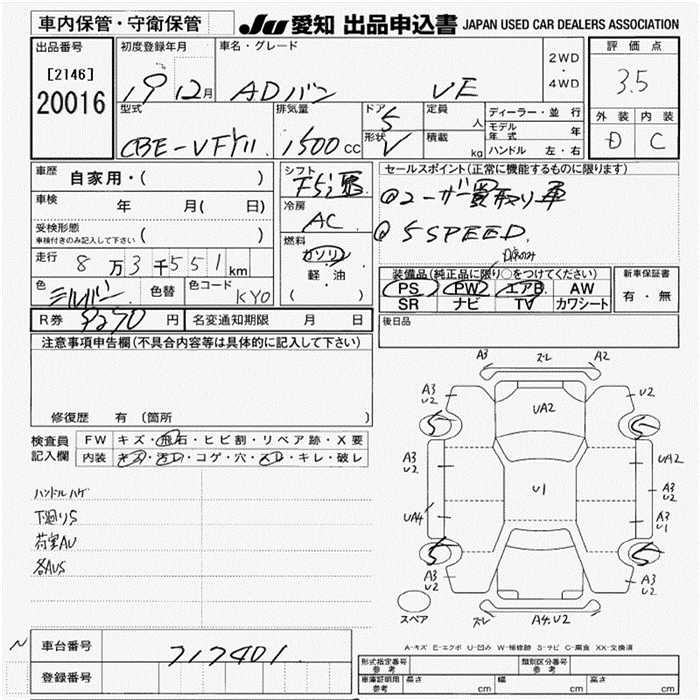 車内保管・守衛保管
JU 愛知 出品申込書 JAPAN USED CAR DEALERS ASSOCIATION
出品番号
[2146]
20016
初度登録年月
19 12月
車名・グレード
ADバン VE
2WD
・
4WD
評価点
3.5
外装 内装
D C
型式
CBE-VFY11
排気量
1500cc
ドア 5
形状 V
定員 人
積載 kg
ディーラー・並行
モデル年式 年
ハンドル 左・右
車歴
自家用・( )
車検 年 月( 日)
受検形態
車検付きのみ記入して下さい ( )
走行 8万3千551km
色 シルバー 色替 色コード KYO
シフト
F5
冷房
AC
燃料
ガソリン
軽・油
( )
セールスポイント(正常に機能するものに限ります)
ユーザー買取り車
5SPEED.
装備品(純正品に限り○をつけてください)
PS PW エアB AW
SR ナビ TV カワシート
新車保証書
有・無
R券 9270円 名変通知期限 月 日
後日品
注意事項申告欄(不具合内容等は具体的に記入して下さい)
修復歴 有 (箇所 )
検査員
記入欄
FW キズ・飛石・ヒビ割・リペア跡・X要
内装 キズ・汚レ・コゲ・穴・スレ・キレ・破レ
ハンドルハゲ
下廻りS
荷室AU
各AUS
A3 スレ A2
A3
U2
U2
UA2
S S
A3
U2
UA2
U1
A3
U2
UA4
A3
U1
S S
A3
U2
A3
U2
スペア
スレ A4.U2
A-キズ E-エクボ U-凹み W-補修跡 S-サビ C-腐食 XX-交換済
N
車台番号 717401
登録番号
形式指定番号
参考
類別区分番号
参考
車庫証明用
参考
長さ cm 幅 cm 高さ cm